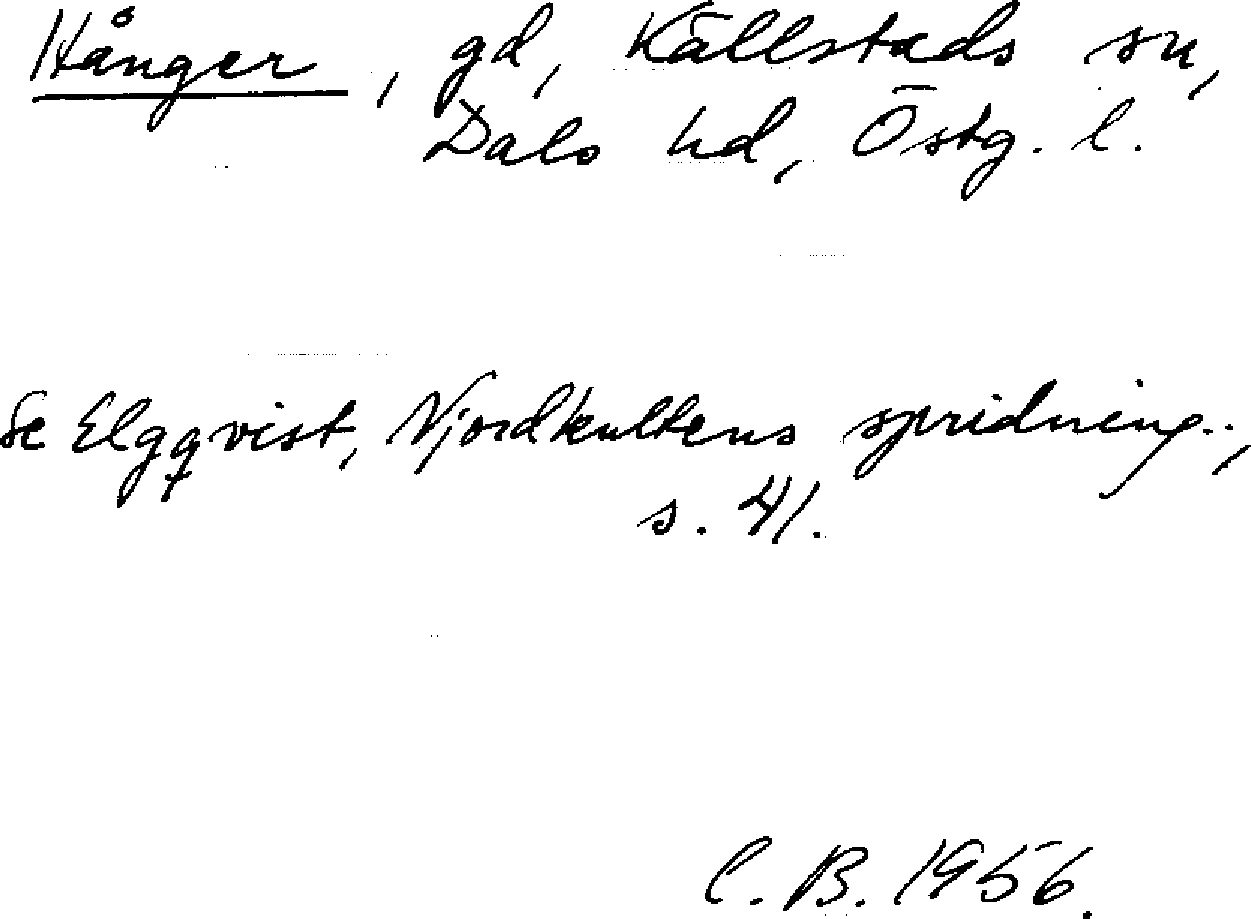 Hånger, gd, Källstads sn,
Dals hd, Östg. l.
Se Elgqvist, Njordkultens spridning..,
s. 41.
C. B. 1956.